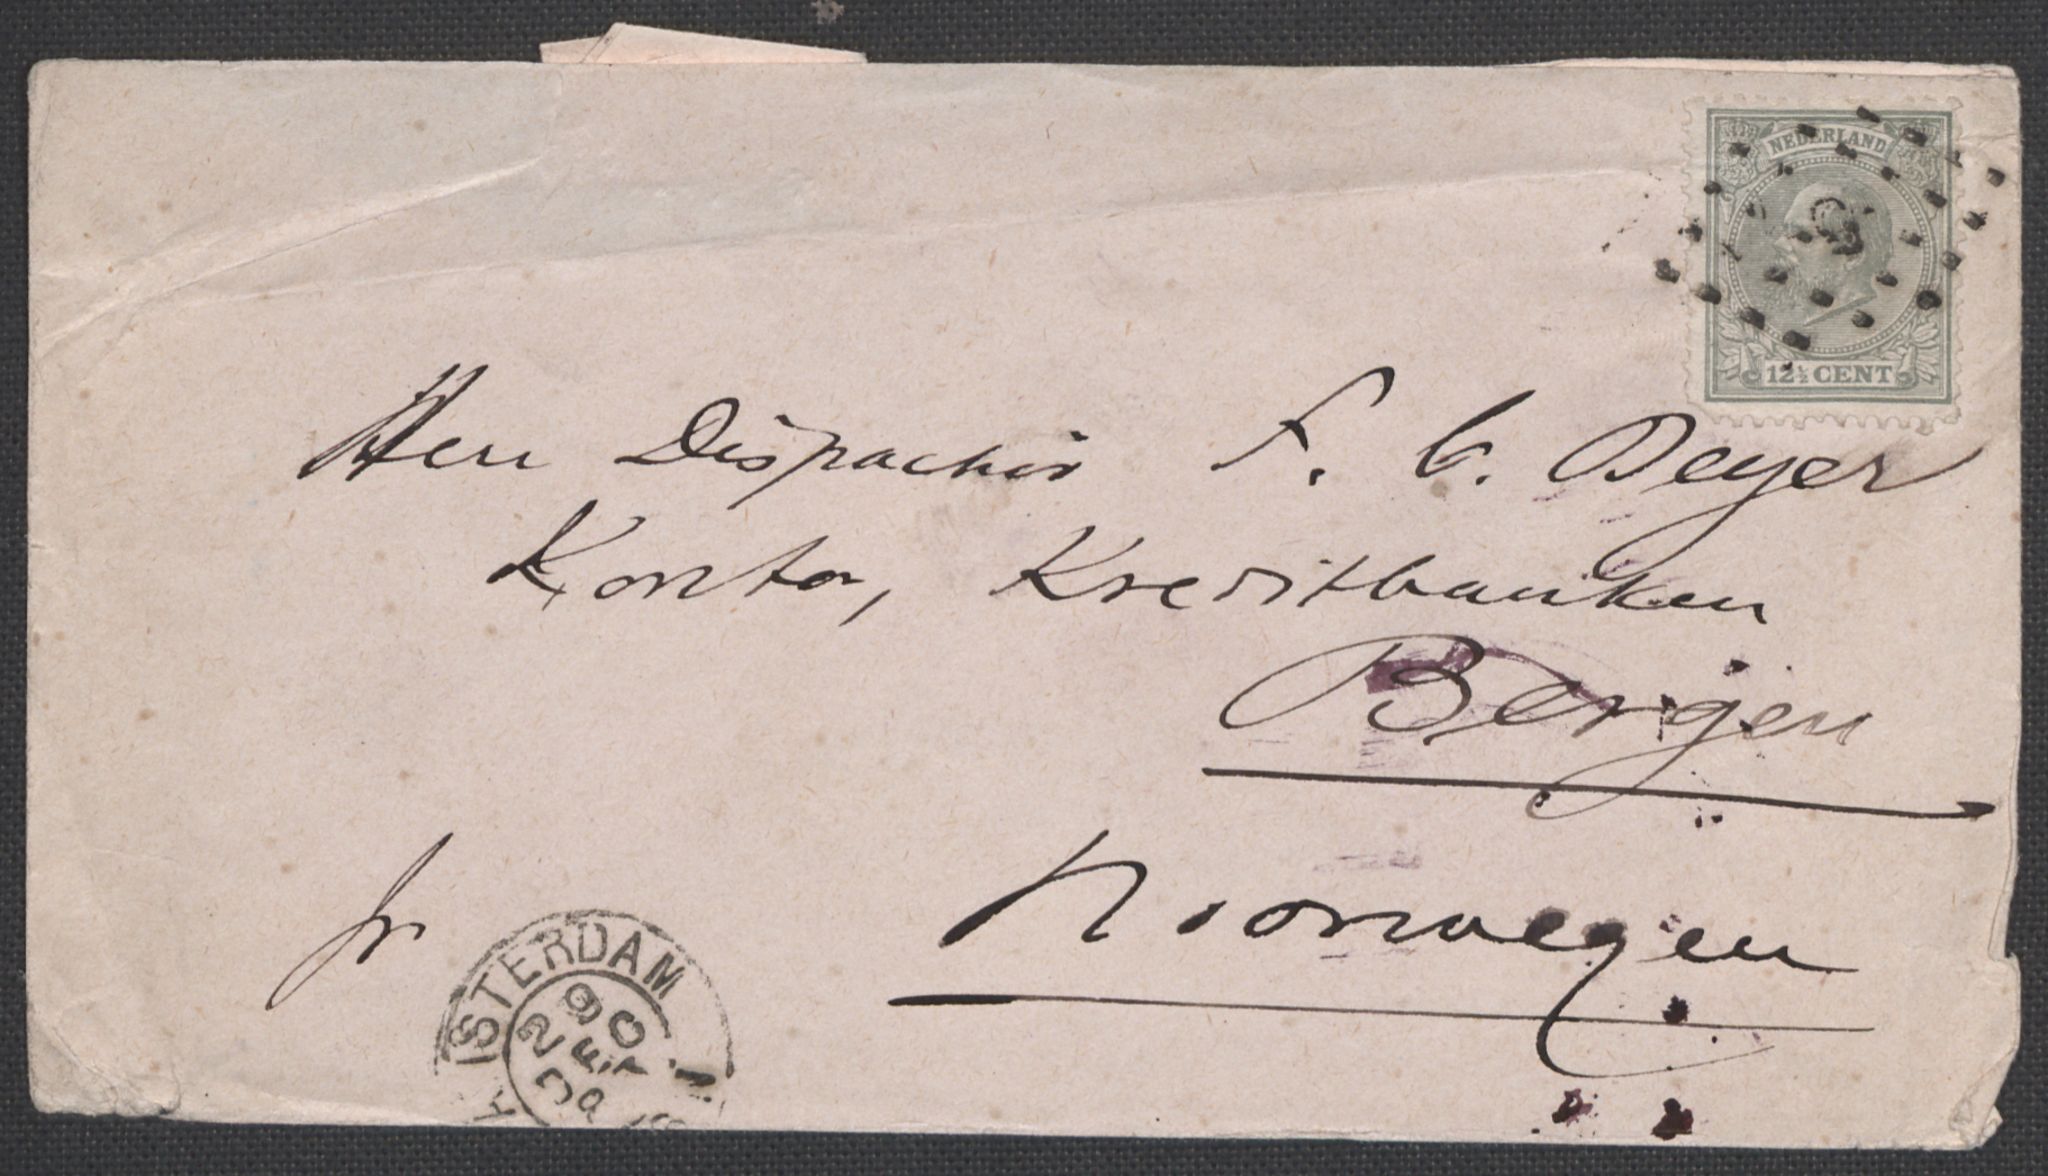 NEDERLAND
12½ CENT
Herr Dispachør F. C. Beyer
Kontor, Kreditbanken
Bergen
fr
Noorwegen
STERDAM